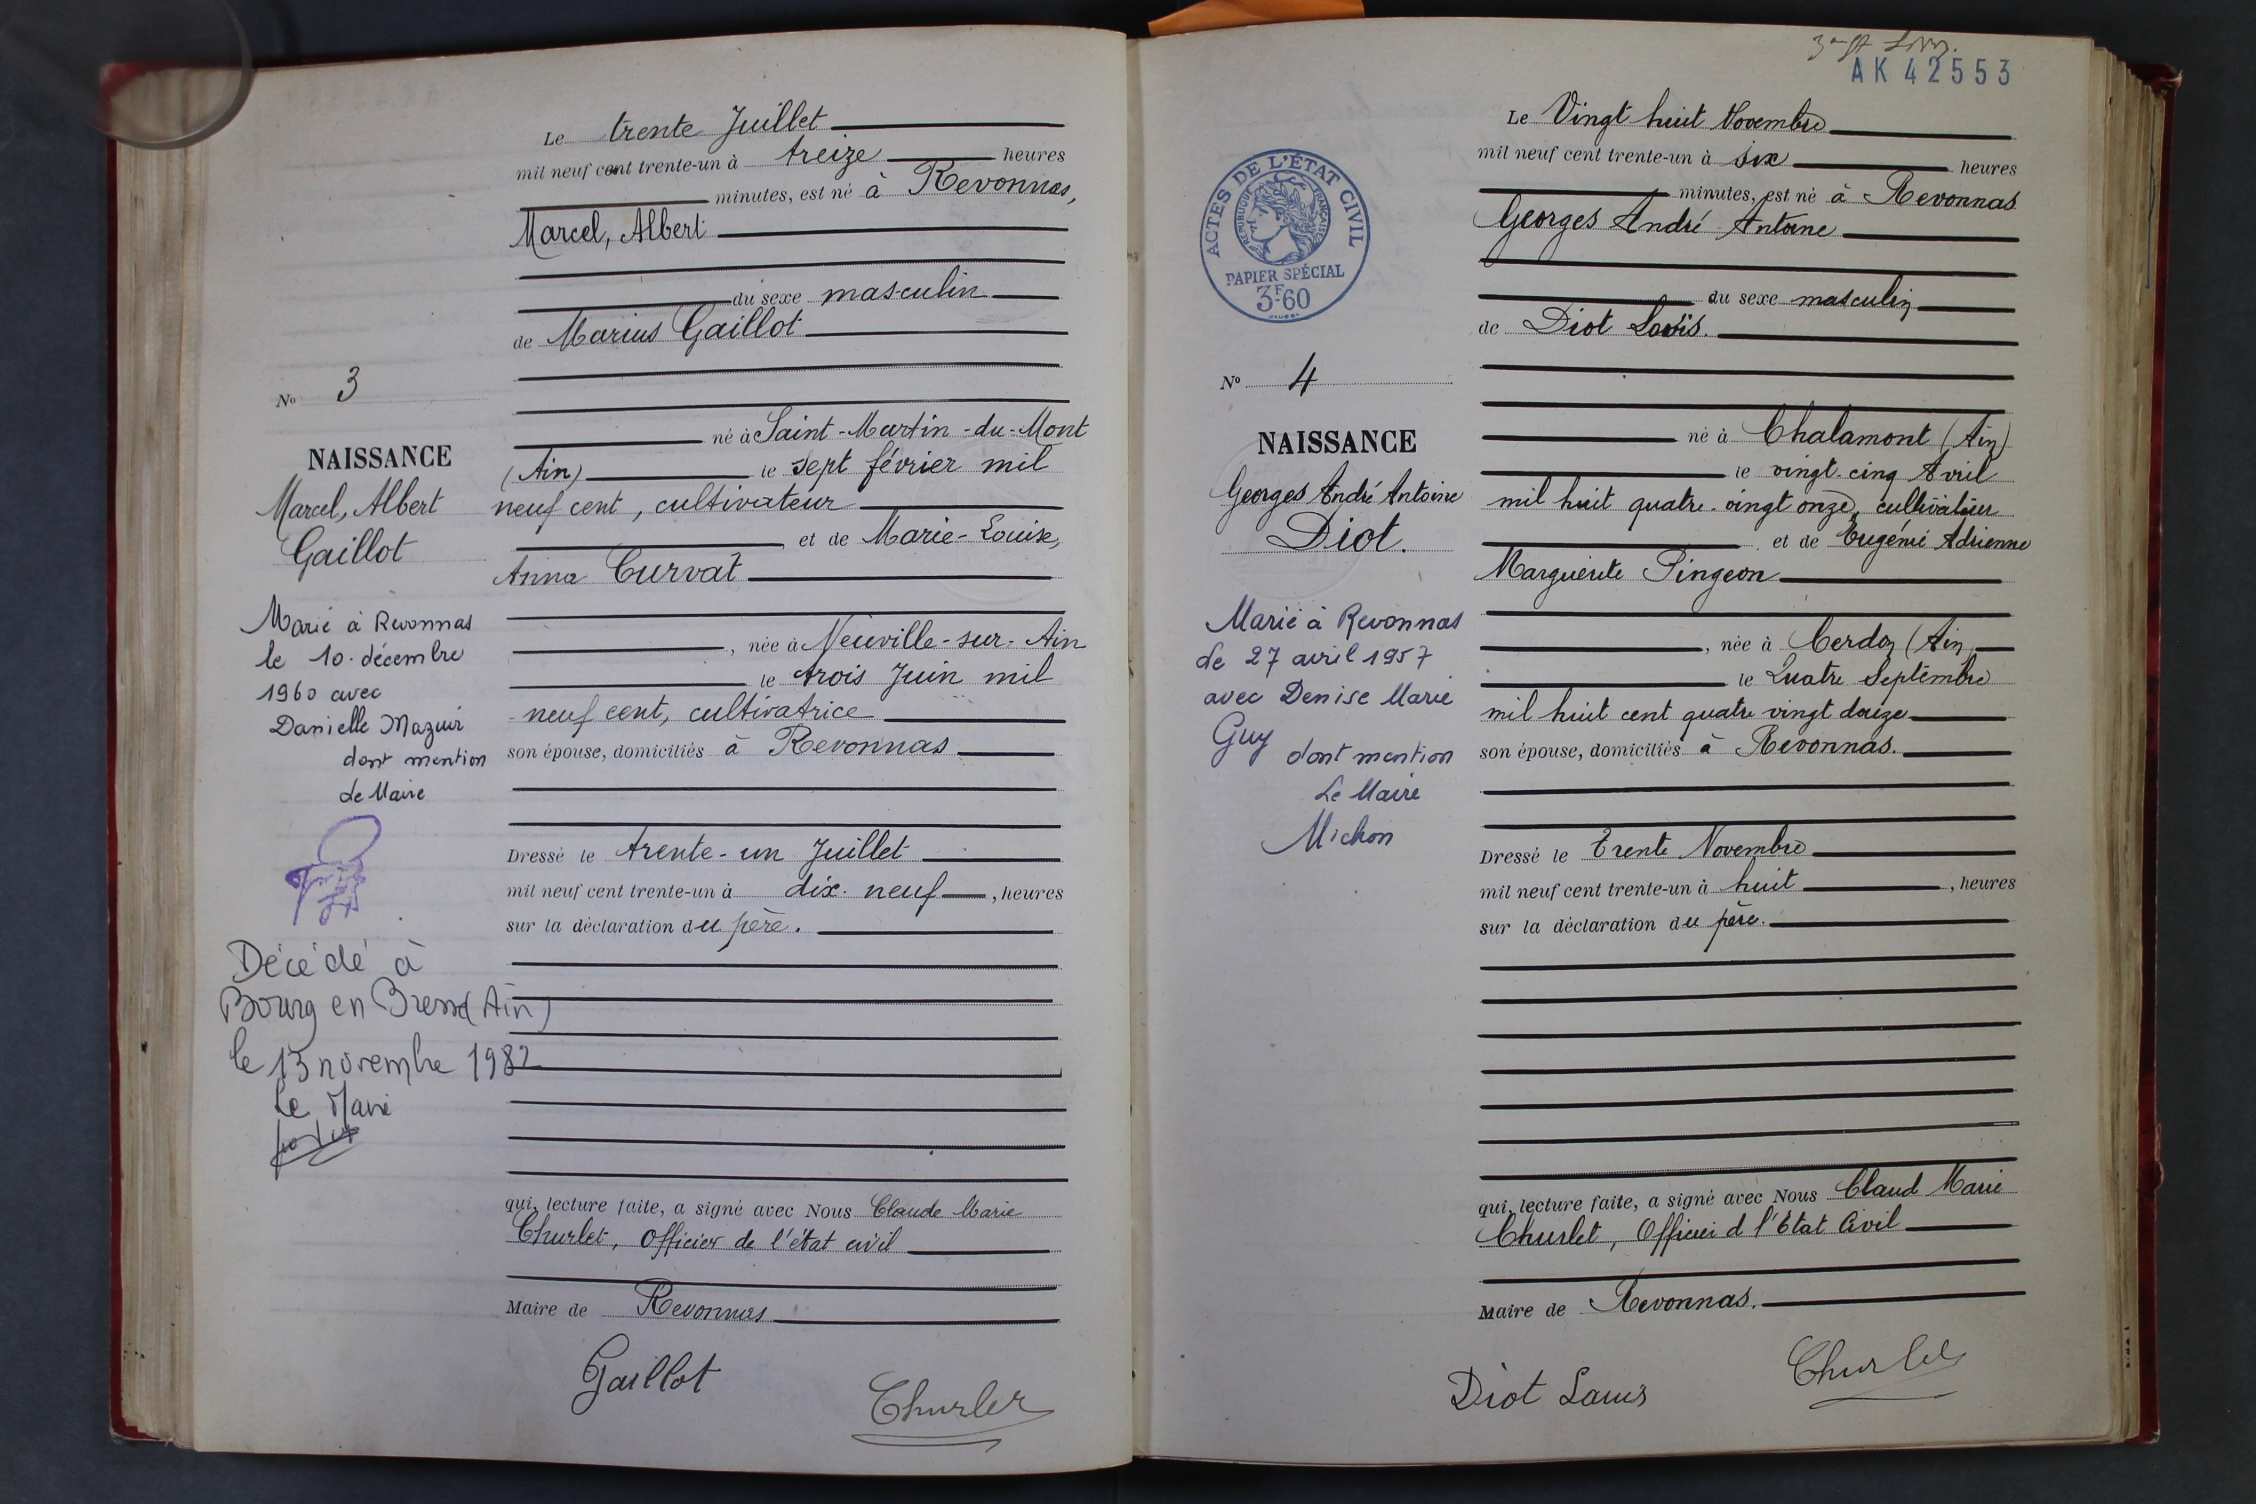 Le trente Juillet
mil neuf cent trente-un à treize heures
minutes, est né à Revonnas,
Marcel, Albert
du sexe masculin
de Marius Gaillot
No 3
né à Saint-Martin-du-Mont
NAISSANCE
(Ain) le sept février mil
Marcel, Albert
neuf cent, cultivateur
Gaillot
et de Marie-Louise,
Anna Curvat
Marié à Revonnas
le 10 décembre
1960 avec
Danielle Mazuir
dont mention
Le Maire
née à Neuville-sur-Ain
le trois Juin mil
neuf cent, cultivatrice
son épouse, domiciliés à Revonnas
Dressé le trente-un Juillet
mil neuf cent trente-un à dix-neuf, heures
sur la déclaration du père.
Décédé à
Bourg en Bresse (Ain)
le 13 novembre 1982
Le Maire
qui, lecture faite, a signé avec Nous Claude Marie
Churlet, Officier de l'état civil
Maire de Revonnas
Gaillot
Churlet
AK 42553
Le Vingt huit Novembre
mil neuf cent trente-un à six heures
minutes, est né à Revonnas
Georges André Antoine
ACTES DE L'ÉTAT CIVIL
RÉPUBLIQUE FRANÇAISE
PAPIER SPÉCIAL
3F60
du sexe masculin
de Diot Louis.
No 4
né à Chalamont (Ain)
NAISSANCE
le vingt-cinq Avril
Georges André Antoine
mil huit quatre-vingt onze, cultivateur
Diot.
et de Eugénie Adrienne
Marguerite Pingeon
Marié à Revonnas
le 27 avril 1957
avec Denise Marie
Guy dont mention
Le Maire
Michon
, née à Cerdon (Ain)
le Quatre Septembre
mil huit cent quatre vingt douze
son épouse, domiciliés à Revonnas.
Dressé le Trente Novembre
mil neuf cent trente-un à huit, heures
sur la déclaration du père.
qui, lecture faite, a signé avec Nous Claud Marie
Churlet, Officier d l'Etat Civil
Maire de Revonnas.
Diot Louis
Churlet